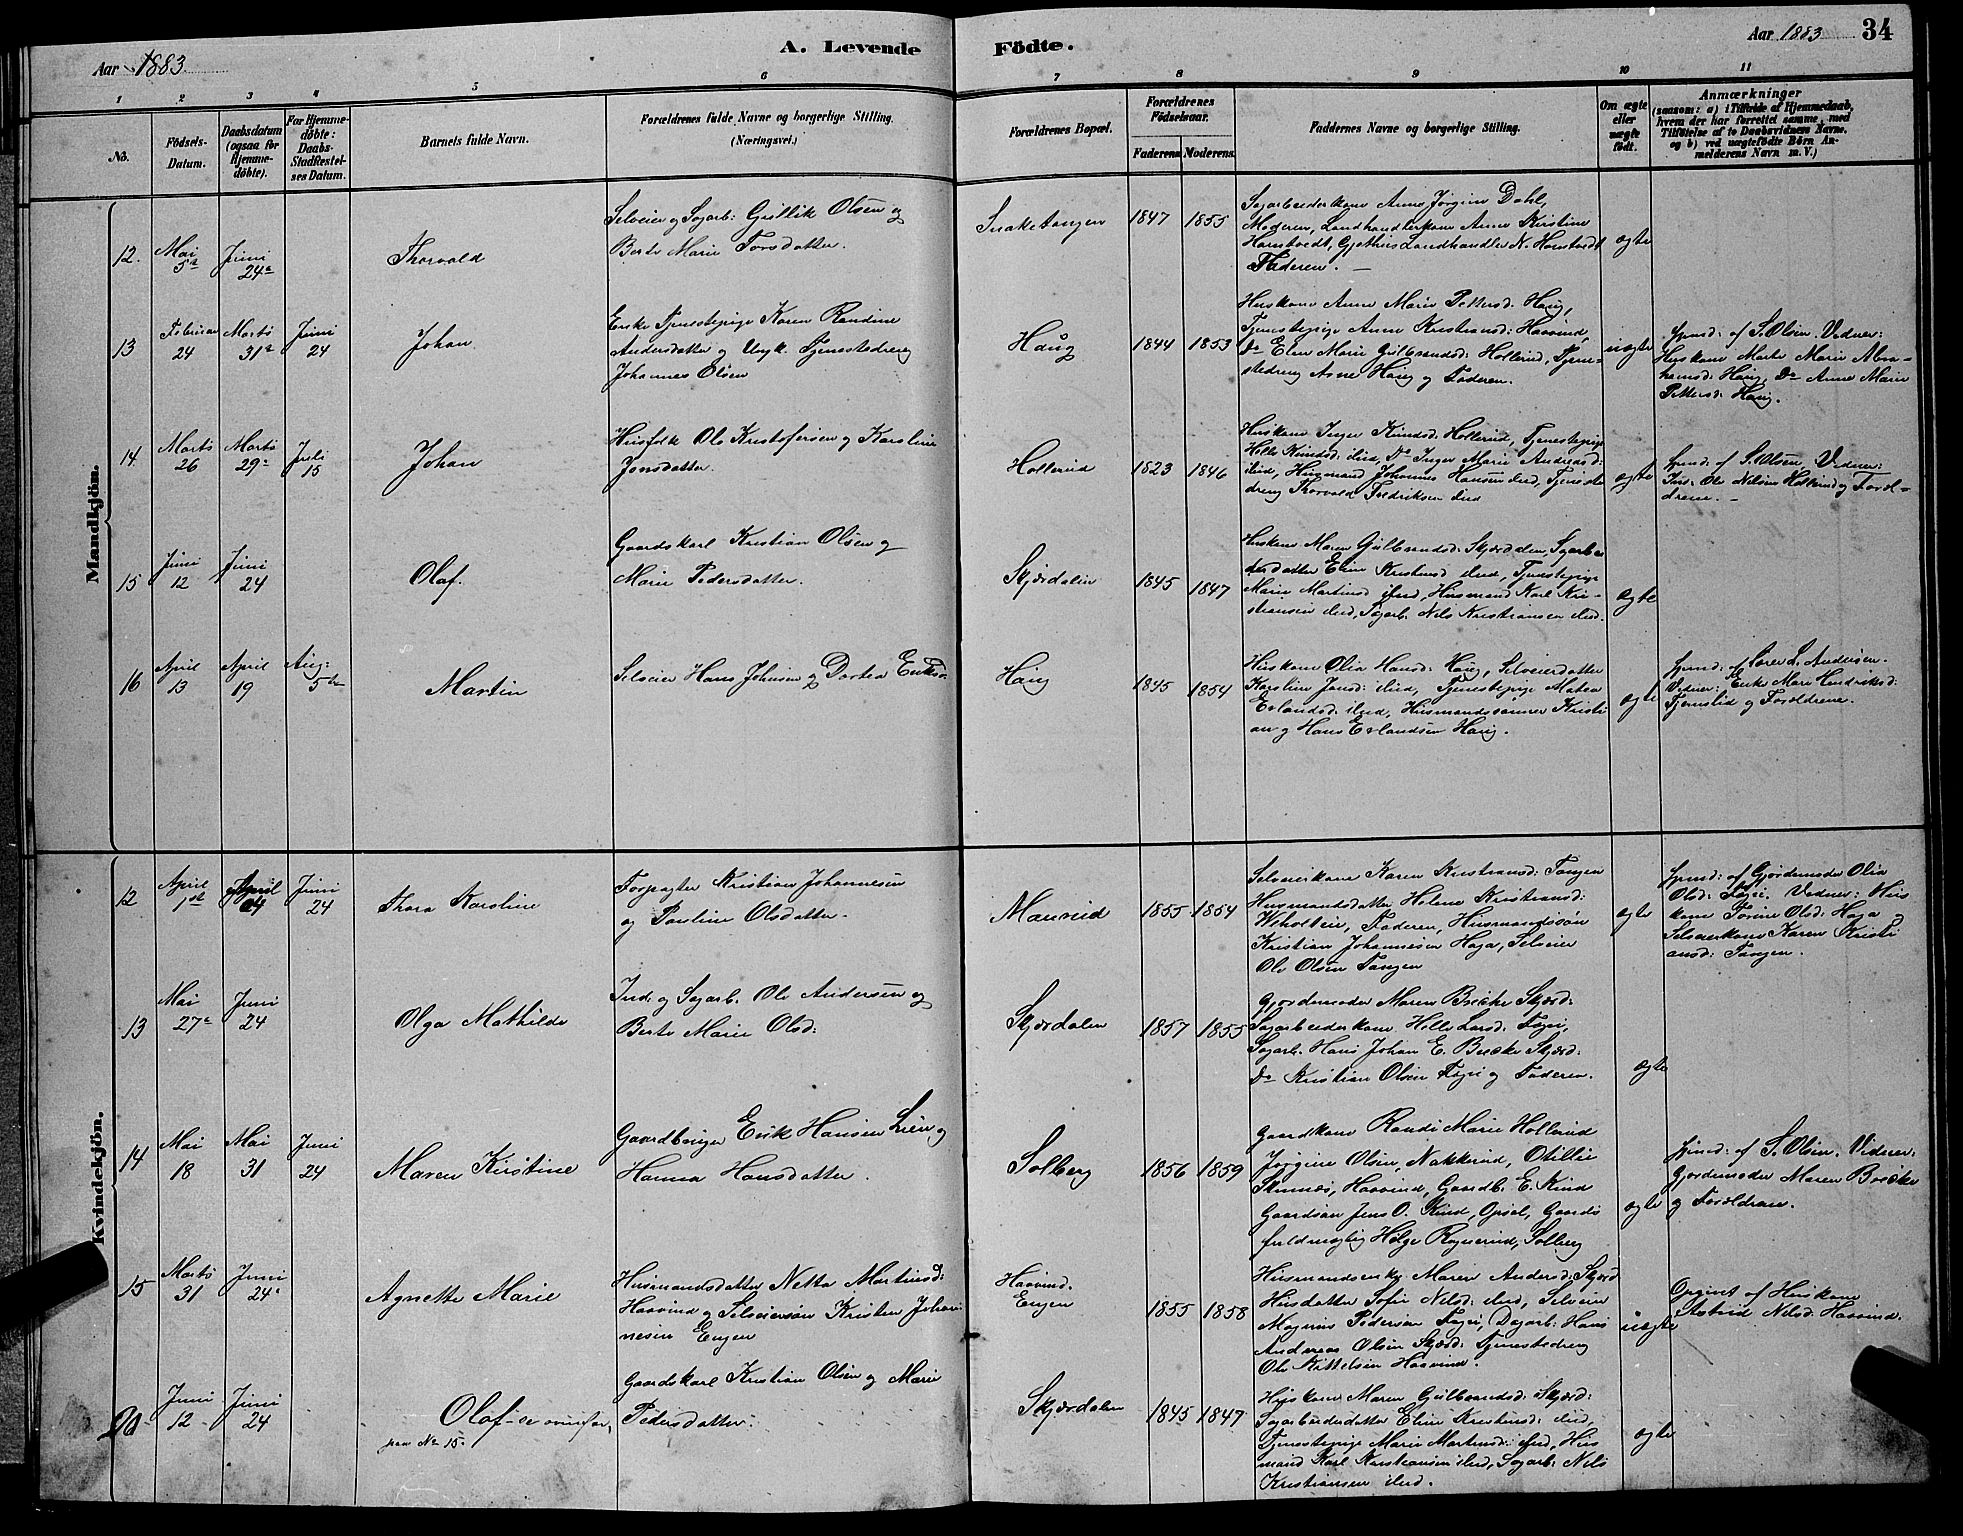 A. Levende Födte.
Aar 1883
Aar 1883
34
1 2 3 4 5 6 7 8 9 10 11
No.
Födsels-Datum.
Daabsdatum (ogsaa for Hjemme-döbte).
For Hjemme-döbte: Daabs-Stadfæstel-ses Datum.
Barnets fulde Navn.
Forældrenes fulde Navne og borgerlige Stilling. (Næringsvei.)
Forældrenes Bopæl.
Forældrenes Födselsaar.
Faderens Moderens
Faddernes Navne og borgerlige Stilling.
Om ægte eller uægte födt.
Anmærkninger
(saasom: a) i Tilfælde af Hjemmedaab, hvem der har forrettet samme, med Tilföielse af to Daabsvidners Navne, og b) ved uægtefödte Börn An-melderens Navn m. V.)
Mandkjön.
12. Mai 5te Juni 24de
Thorvald
Selveier og Sagarb: Gullik Olsen og
Berte Marie Torsdatter.
Snaketangen 1847 1855
Sagarbeiderkone Anne Jörgine Dahl,
Moderen, Landhandlerkone Anne Kirstine
Hamtvedt, Landhandler N. Hamtvedt
Faderen.
ægte
13 Februar 24 Marts 31te Juni 24
Johan
Enke Tjenestepige Karen Randine
Andersdatter og Ungk. Tjenestedreng
Johannes Olsen
Haug 1844 1853
Huskone Anne Marie Pettersd: Haug,
Tjenestepige Anne Kristiansd: Haavind,
Do Elen Marie Gulbrandsd: Hollerud, Tjene-
stedreng Arne Haug og Faderen.
uægte
hjmd: af S. Olsen. Vidner:
Huskone Marte Marie Abra-
hamsd: Haug, Do Anne Marie
Pettersd: Haug.
14 Marts 26 Marts 29de Juli 15
Johan
Husfolk Ole Kristofersen og Karoline
Jonsdatter.
Hollerud 1823 1846
Huskone Inger Knudsd: Hollerud, Tjenestepige
Helle Knudsd: ibid, Do Inger Marie Andreasd:
ibid, Husmand Johannes Hansen ibid, Tjeneste
dreng Thorvald Fredriksen ibid
ægte
hjmd: af S. Olsen, Vidner:
Ole Nilsen Hollerud og Foræl-
drene.
15 Juni 12 Juni 24
Olaf.
Gaardskarl Kristian Olsen og
Marie Pedersdatter.
Skjærdalen 1845 1847
Huskone Maren Gulbrandsd: Skjærdalen, Sagarbei
derdatter Eline Kristiansd ibid, Tjenestepige
Marie Martinsd ibid, Husmand Karl Kri-
stiansen ibid, Sagarb. Nils Kristiansen ibid.
ægte
16 April 13 April 19 Aug: 5te
Martin
Selveier Hans Johnsen og Dortea Eriksd.
Haug 1845 1854
Huskone Olia Hansd: Haug, Selveierdatter
Karoline Jansd: ibid, Tjenestepige Matea
Erlandsd: ibid, Husmandssønner Kristi
an og Hans Erlandsen Haug.
ægte
hjmd: af Søren L. Andersen.
Vidner: Enke Mari Hendriksd:
Tjernslid og Forældrene.
Kvindekjön.
12 April 1st April 24 Juni 24
Thora Karoline
Forpagter Kristian Johannesen
og Pauline Olsdatter.
Maurud 1855 1854
Selveierkone Karen Kristiansd: Tangen
Husmandsdatter Helene Kristiansd:
Faderen, Husmandssøn
Kristian Johannesen Haga, Selveier
Ole Olsen Tangen
ægte
hjmd: af Gjordemoder Olia
Olsd: Vidner: Hus
kone Torine Olsd: Haga og
Selveierkone Karen Kristi
ansd: Tangen.
13 Mai 27de Juni 24
Olga Mathilde
Ind. og Sagarb. Ole Andersen og
Berte Marie Olsd:
Skjærdalen 1857 1855
Gjordemoder Maren Bække Skjærd:
Sagarbeiderkone Helle Larsd:
Sagarb. Hans Johan E. Bække Skjærd:
Do Kristian Olsen og Faderen.
ægte
14 Mai 18 Mai 31 Juni 24
Maren Kirstine
Gaardbruger Erik Hansen Lien og
Hanna Hansdatter.
Solberg 1856 1859
Gaardkone Randi Marie Hollerud
Jørgine Olsen, Nakkerud, Otillie
Haavind, Gaardb. E. Kind
Gaardsøn Jens O. Kind, Opsal, Gaards
fuldmægtig Helge Rognerud, Solberg
ægte
hjmd: af S. Olsen. Vidner:
Gjordemoder Maren Bække
og Forældrene.
15 Marts 31 Juni 24de
Agnette Marie
Husmandsdatter Netta Martinsd:
Haavind og Selveiersøn Kristen Johan-
nesen Engen
Haavind. Engen 1855 1858
Husmandsenke Maren Andersd: Skjærd
Husdatter Sofie Nilsd: ibid, Selveier
Magnus Pedersen Dagarb: Hans
Andreas Olsen Skjærd: Tjenestedreng
Ole Kittelsen Haavind.
uægte
Opgivet af Huskone
Astrid Nilsd: Haavind.
Juni 12 Juni 24
Olaf - se ovenfor,
paa No 15.
Gaardskarl Kristian Olsen og Marie
Pedersdatter.
Skjærdalen 1845 1847
Huskone Maren Gulbrandsd: Skjærd:
Sagarbeiderdatter Eline Kristiansd: ibid,
Tjenestepige Marie Martinsd: ibid, Hus
mand Karl Kristiansen ibid, Sagarb: Nils
Kristiansen ibid.
ægte